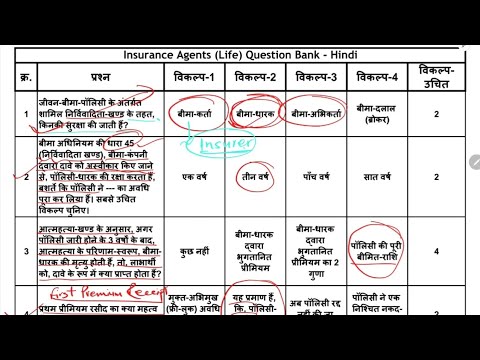 Insurance Agents (Life) Question Bank - Hindi
क्र. प्रश्न विकल्प-1 विकल्प-2 विकल्प-3 विकल्प-4 विकल्प-
उचित
1 जीवन-बीमा-पॉलिसी के अंतर्गत
शामिल निर्विवादिता-खण्ड के तहत,
किनकी सुरक्षा की जाती हैं?
बीमा-कर्ता बीमा-धारक बीमा-अभिकर्ता बीमा-दलाल
(ब्रोकर)
2
Insurer
2 बीमा अधिनियम की धारा 45
(निर्विवादिता खण्ड), बीमा-कंपनी
दवारा दावे को अस्वीकार किए जाने
से, पॉलिसी-धारक की रक्षा करता हैं,
बशर्ते कि पॉलिसी ने --- का अवधि
पूरा कर लिया हैं। सबसे उचित
विकल्प चुनिए।
एक वर्ष तीन वर्ष पाँच वर्ष सात वर्ष 2
3 आत्महत्या-खण्ड के अनुसार, अगर
पॉलिसी जारी होने के 3 वर्षों के बाद,
आत्महत्या के परिणाम-स्वरूप, बीमा-
धारक की मृत्यु होती हैं, तो, लाभार्थी
को, दावे के रूप में क्या प्राप्त होता हैं?
कुछ नहीं
बीमा-धारक
दवारा
भुगतानित
प्रीमियम
बीमा-धारक
दवारा
भुगतानित
प्रीमियम का 2
गुणा
पॉलिसी की पूरी
बीमित-राशि
4
First Premium Receipt
प्रथम प्रीमियम रसीद का क्या महत्व
मुक्त-अभिमुख
(फ्री-लुक) अवधि
यह प्रमाण हैं,
कि, पॉलिसी-
अब पॉलिसी रद्द
पॉलिसी ने एक
निश्चित नकद-